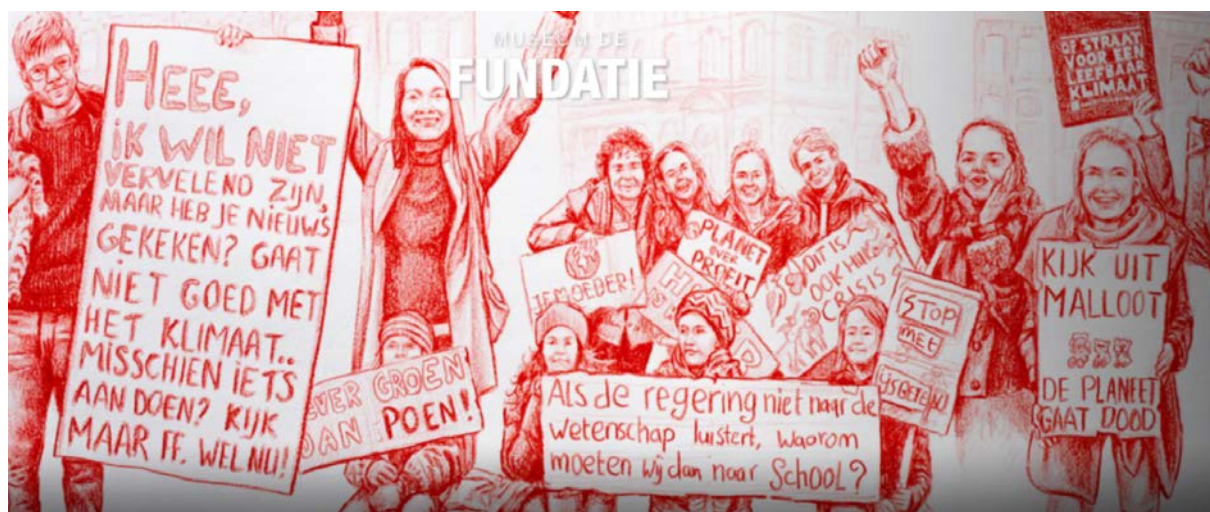 MUSEUM DE
FUNDATIE
HEEE,
IK WIL NIET
VERVELEND ZIJN,
MAAR HEB JE NIEUWS
GEKEKEN? GAAT
NIET GOED MET
HET KLIMAAT..
MISSCHIEN IETS
AAN DOEN? KIJK
MAAR FF. WEL NU!
EVER GROEN
DAN POEN!
JE MOEDER!
PLANET
OVER
PROFIT
DIT IS
OOK HUN
CRISIS
Als de regering niet naar de
wetenschap luistert, waarom
moeten wij dan naar SCHOOL?
STOP
MET
OF STRAAT
VOOR EEN
LEEFBAAR
KLIMAAT
KIJK UIT
MALLOOT
DE PLANEET
GAAT DOOD